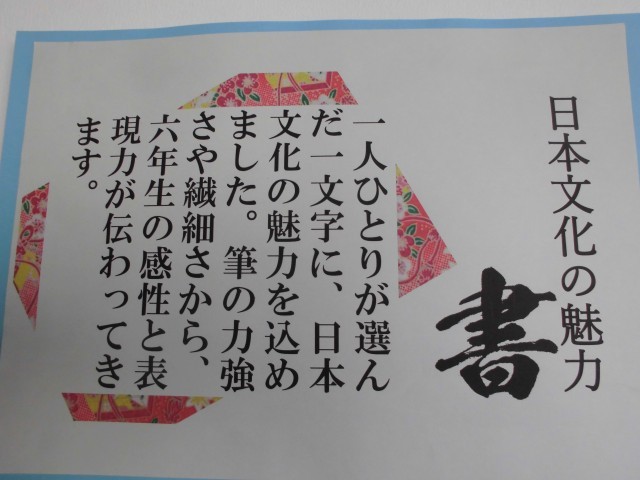 日本文化の魅力
書
一人ひとりが選ん
だ一文字に、日本
文化の魅力を込め
ました。筆の力強
さや繊細さから、
六年生の感性と表
現力が伝わってき
ます。